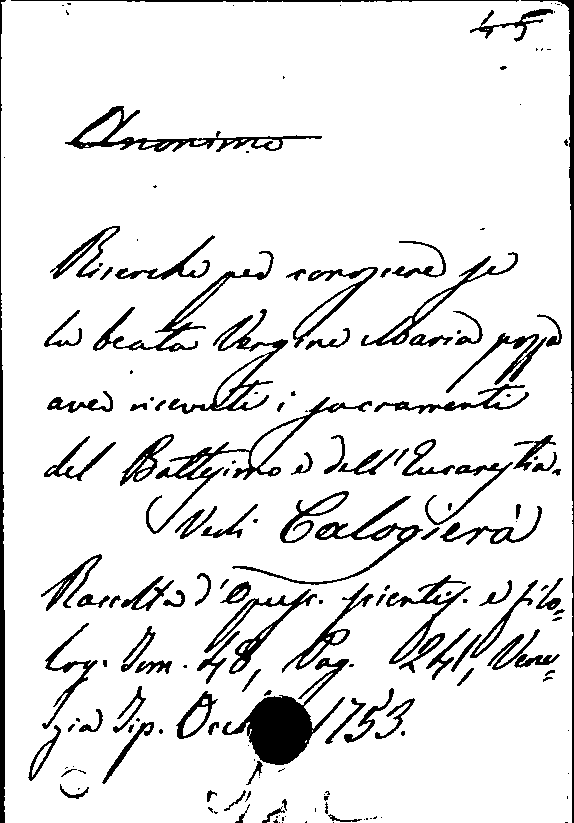 45
Anonimo
Ricerche per conoscere se
la beata Vergine Maria possa
aver ricevuti i sacramenti
del Battesimo e dell'Eucarestia.
Vedi Calogierà
Raccolta d'Opusc. scientif. e filo=
log. Tom. 48, Pag. 241, Vene=
zia Tip. Occhi 1753.